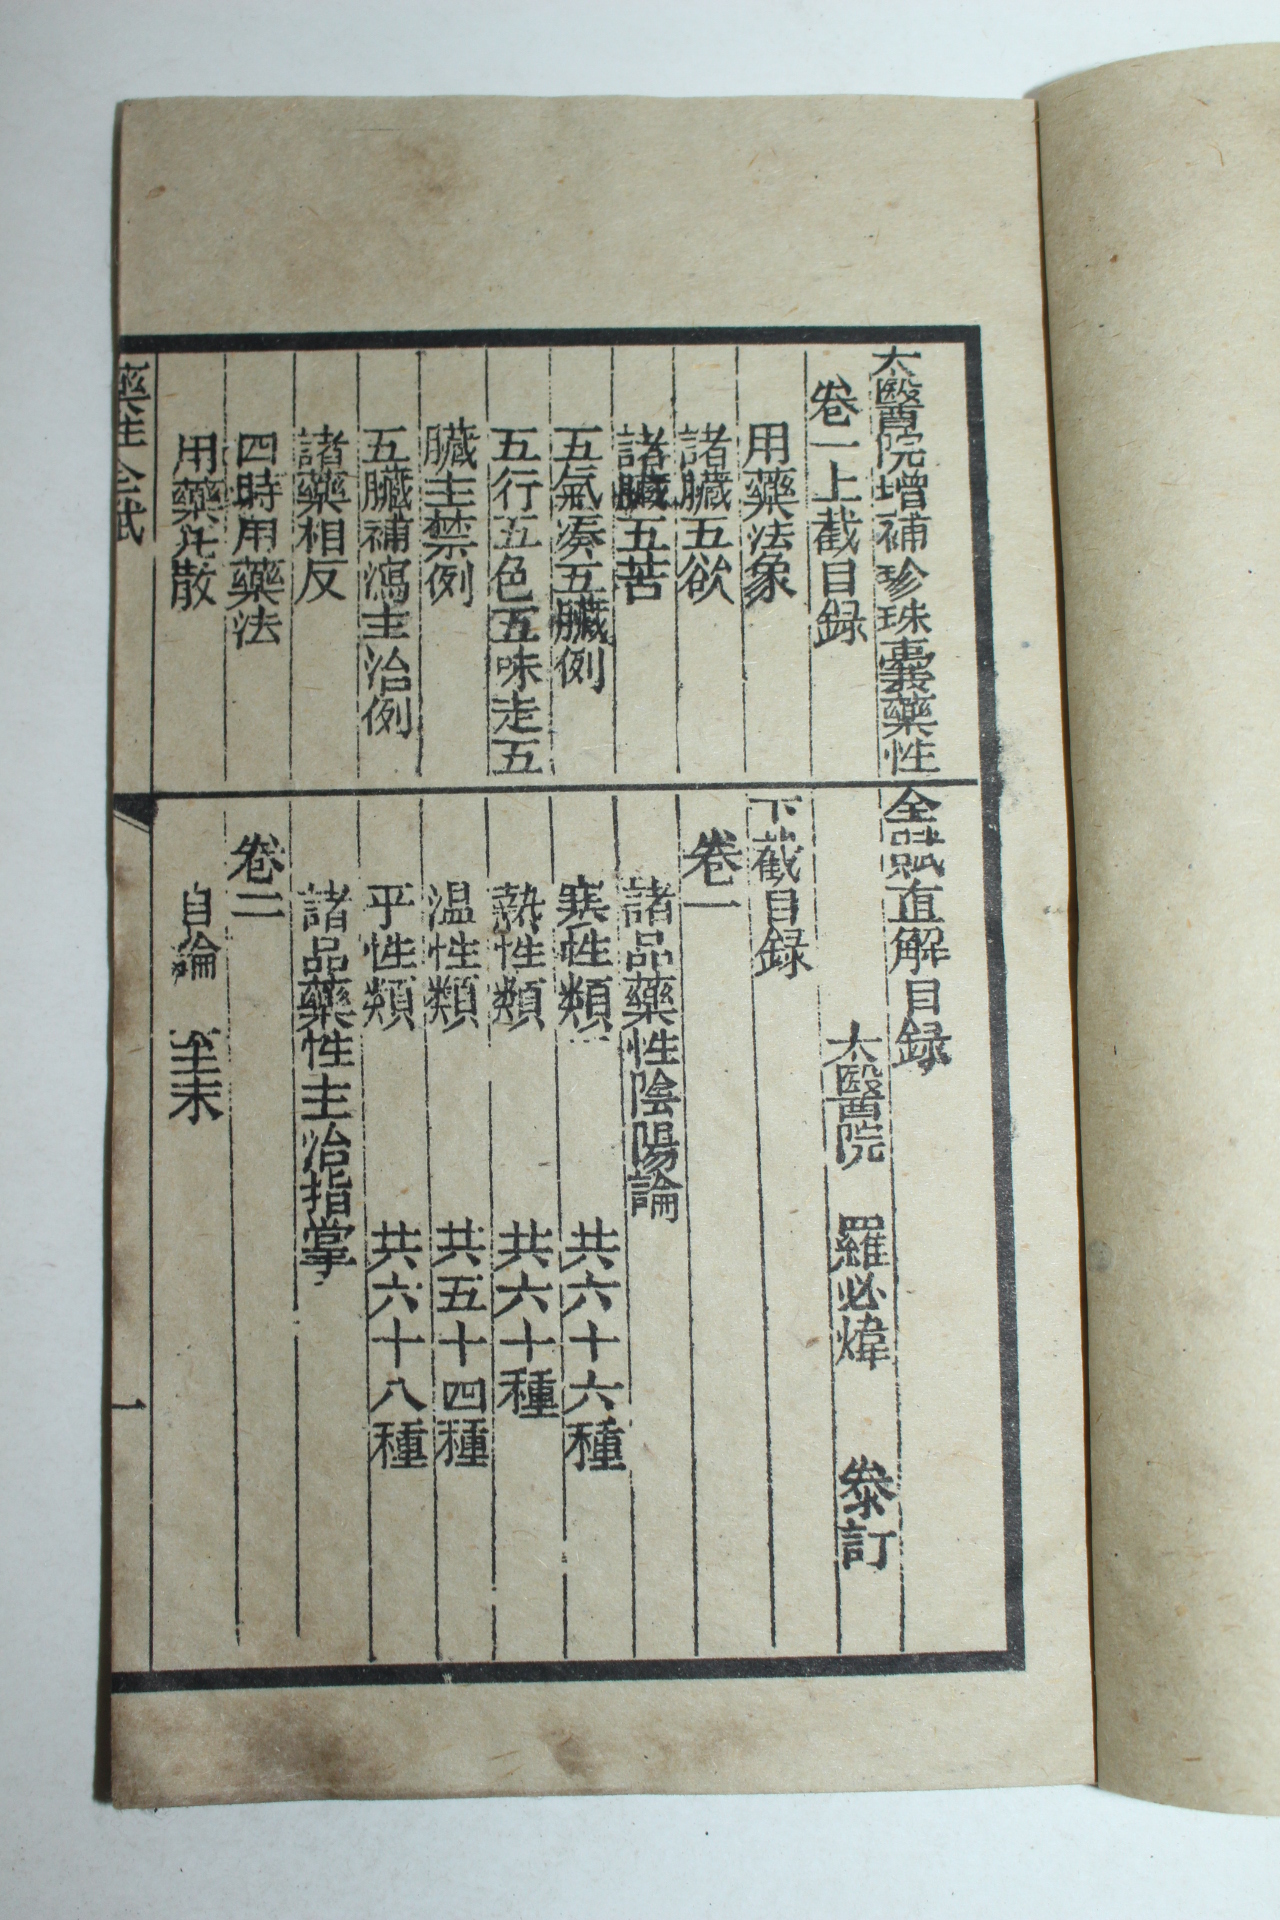 太醫院增補珍珠囊藥性全賦直解目録
太醫院 羅必煒 叅訂
卷一上截目録
用藥法象
諸臟五欲
諸臟五苦
五氣湊五臟例
五行五色五味走五
臟主禁例
五臟補瀉主治例
諸藥相反
四時用藥法
用藥凡散
下截目録
卷一
諸品藥性陰陽論
寒性類 共六十六種
熱性類 共六十種
温性類 共五十四種
平性類 共六十八種
諸品藥性主治指掌
卷二
自論 至末
藥性全賦
一